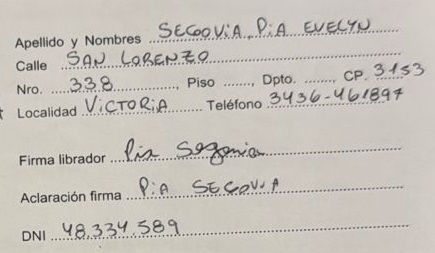 Apellido y Nombres SEGOVIA, PIA EVELYN
Calle SAN LORENZO
Nro. 338, Piso ......., Dpto. ......., CP. 3153
Localidad VICTORIA Teléfono 3436-461897
Firma librador Pia Segovia
Aclaración firma PIA SEGOVIA
DNI 48.334.589